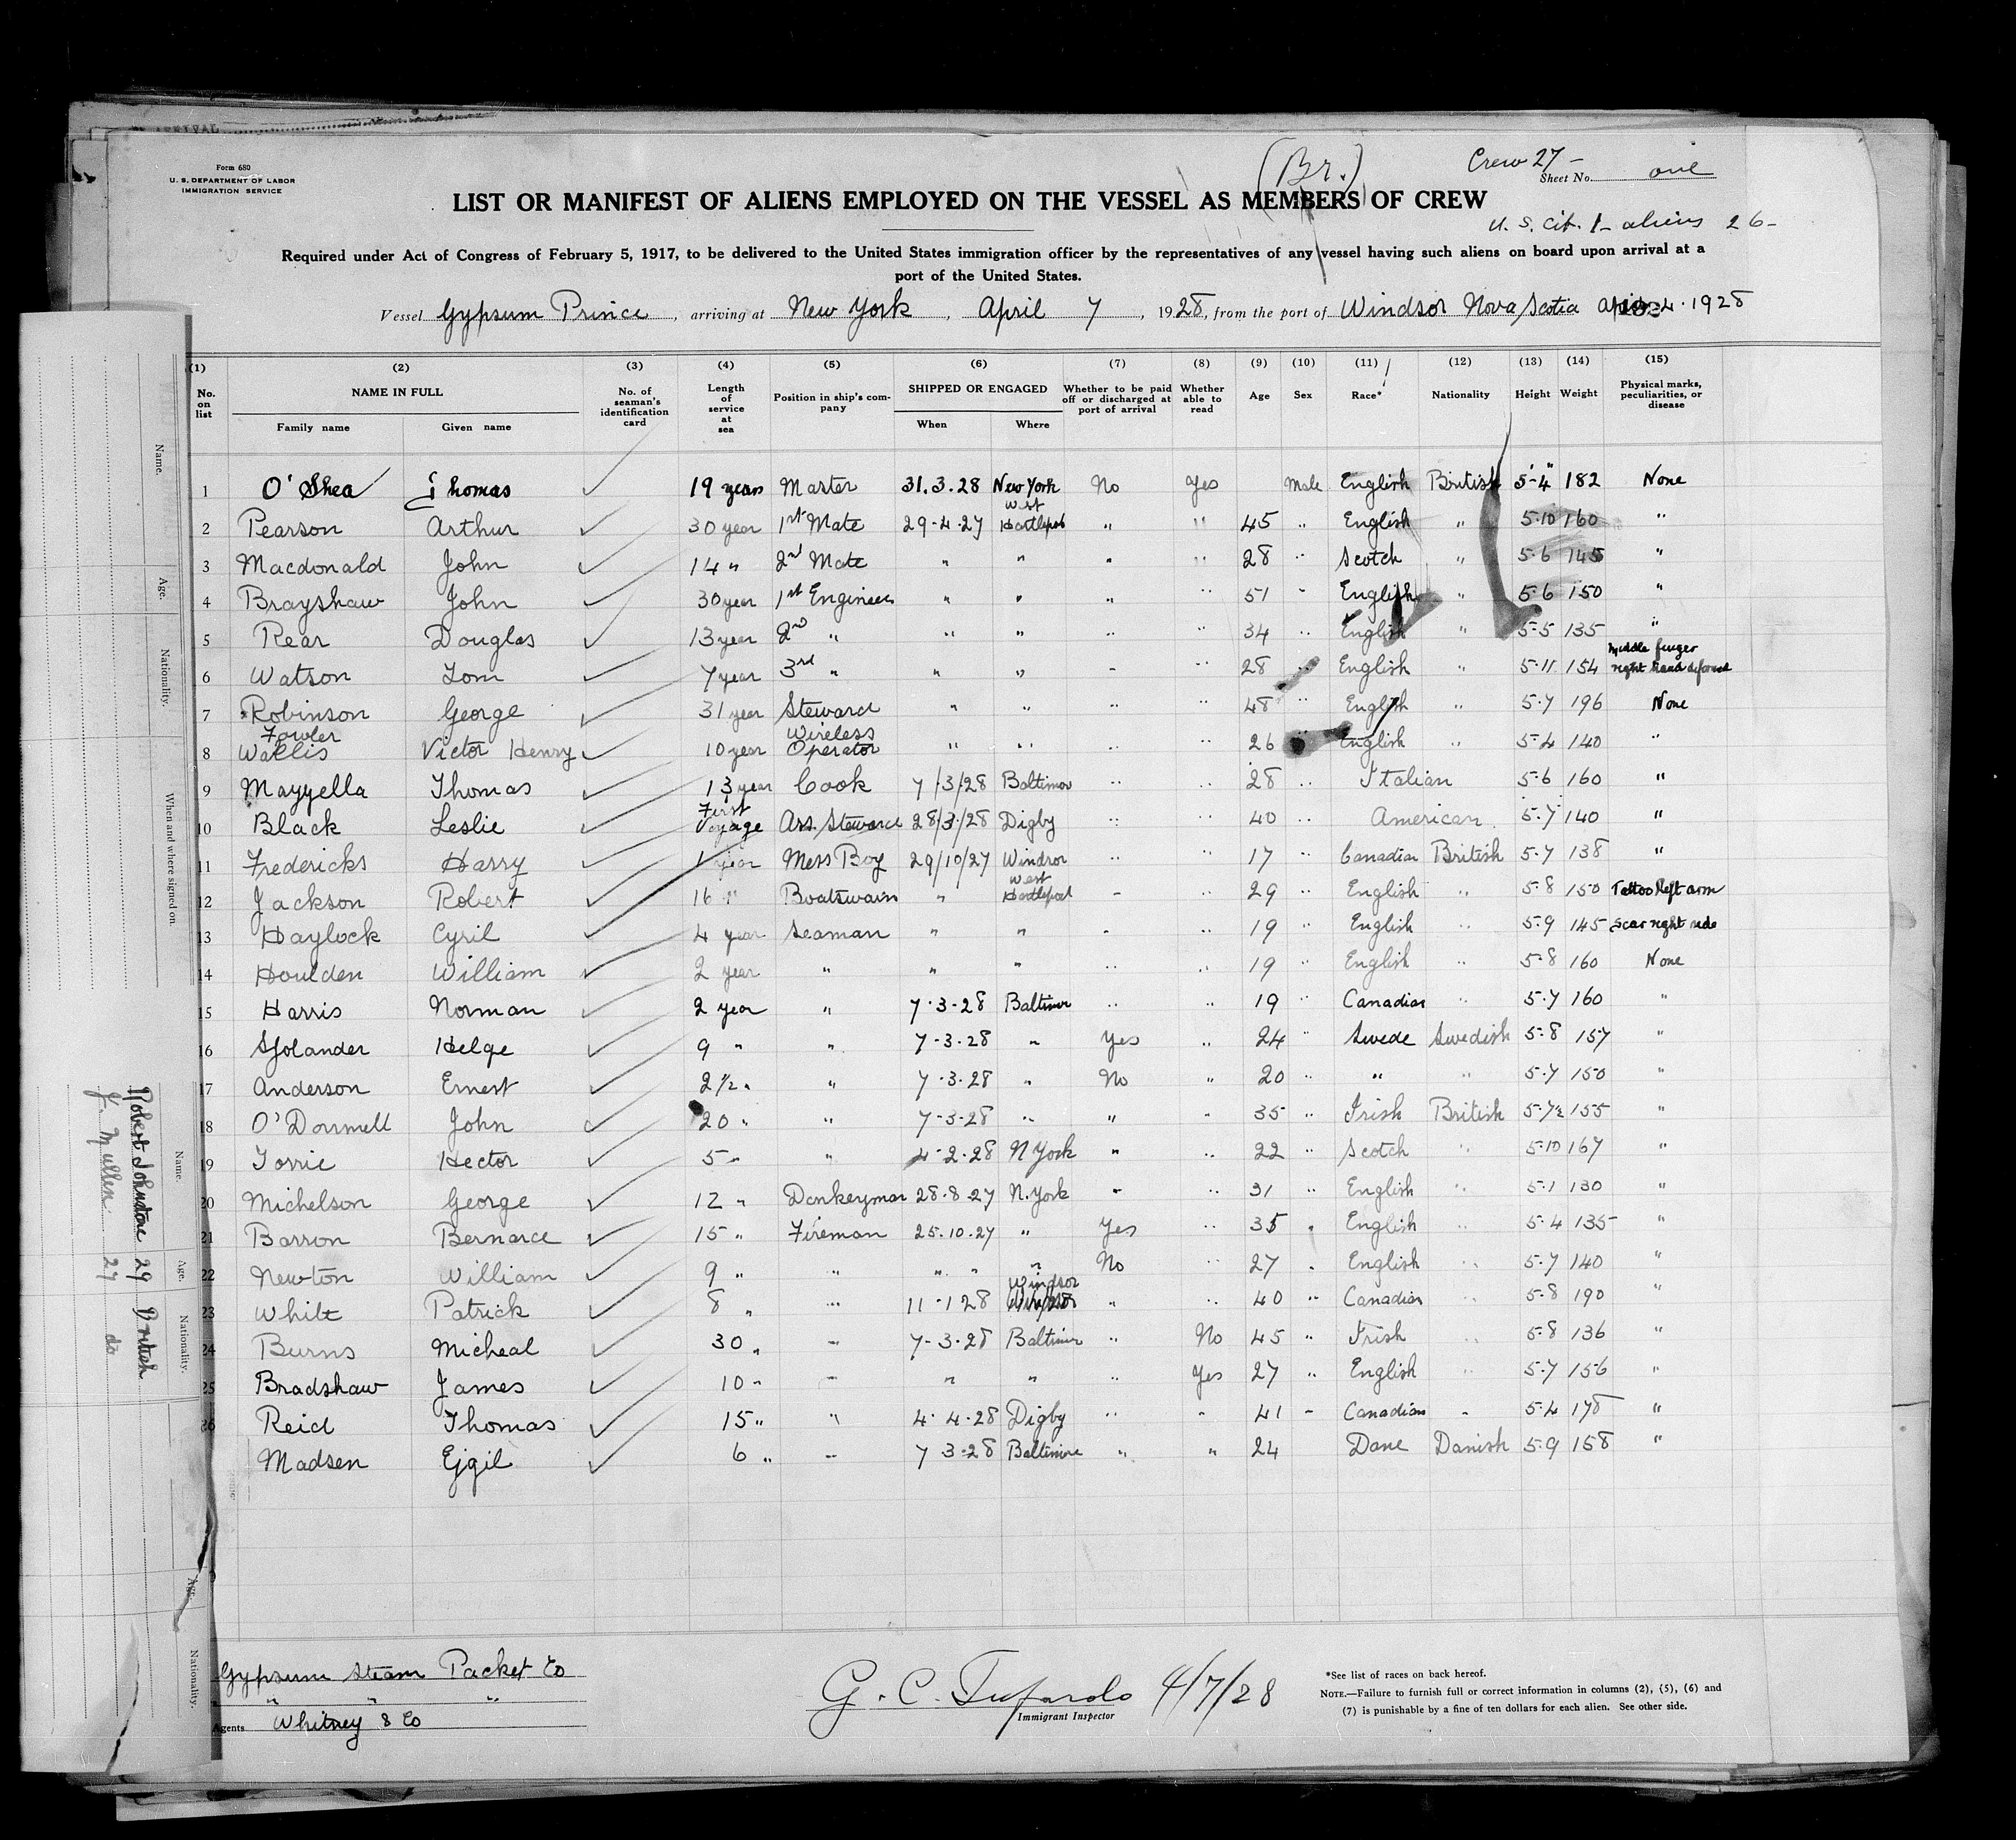 ARRIVAL
Form 680
U. S. DEPARTMENT OF LABOR
IMMIGRATION SERVICE
(Br.)
Crew 27 -
Sheet No. one
LIST OR MANIFEST OF ALIENS EMPLOYED ON THE VESSEL AS MEMBERS OF CREW
U. S. Cit. 1 - aliens 26 -
Required under Act of Congress of February 5, 1917, to be delivered to the United States immigration officer by the representatives of any vessel having such aliens on board upon arrival at a
port of the United States.
Vessel Gypsum Prince, arriving at New York, April 7, 1928, from the port of Windsor Nova Scotia 4.1928
(1) (2) (3) (4) (5) (6) (7) (8) (9) (10) (11) (12) (13) (14) (15)
No. on list NAME IN FULL Family name Given name No. of seaman's identification card Length of service at sea Position in ship's company SHIPPED OR ENGAGED When Where Whether to be paid off or discharged at port of arrival Whether able to read Age Sex Race* Nationality Height Weight Physical marks, peculiarities, or disease
1 O'Shea Thomas ✓ 19 years Master 31.3.28 New York No Yes Male English British 5'-4" 182 None
2 Pearson Arthur ✓ 30 year 1st Mate 29-4-27 West Hartlepool " " 45 " English " 5-10 160 "
3 Macdonald John ✓ 14 " 2nd Mate " " " " 28 " Scotch " 5-6 145 "
4 Brayshaw John ✓ 30 year 1st Engineer " " " " 51 " English " 5-6 150 "
5 Rear Douglas ✓ 13 year 2nd " " " " " 34 " English " 5-5 135 "
6 Watson Tom ✓ 7 year 3rd " " " " " 28 " English " 5-11 154 Middle finger right hand deformed
7 Robinson George ✓ 31 year Steward " " " " 48 " English " 5-7 196 None
8 Fowler Wallis Victor Henry ✓ 10 year Wireless Operator " " " " 26 " English " 5-4 140 "
9 Mayyella Thomas ✓ 13 year Cook 7/3/28 Baltimor " " 28 " Italian 5-6 160 "
10 Black Leslie ✓ First Voyage Ass. Steward 28/3/28 Digby " " 40 " American 5-7 140 "
11 Fredericks Harry ✓ 1 year Mess Boy 29/10/27 Windsor " " 17 " Canadian British 5-7 138 "
12 Jackson Robert ✓ 16 " Boatswain " West Hartlepool " " 29 " English " 5-8 150 Tattoo left arm
13 Haylock Cyril ✓ 4 year Seaman " " " " 19 " English " 5-9 145 Scar right side
14 Houlden William ✓ 2 year " " " " " 19 " English " 5-8 160 None
15 Harris Norman ✓ 2 year " 7-3-28 Baltimor " " 19 " Canadian " 5-7 160 "
16 Sjolander Helge ✓ 9 " " 7-3-28 " Yes " 24 " Swede Swedish 5-8 157 "
17 Anderson Ernest ✓ 2½ " " 7-3-28 " No " 20 " " " 5-7 150 "
18 O'Donnell John ✓ 20 " " 7-3-28 " " " 35 " Irish British 5-7½ 155 "
19 Torrie Hector ✓ 5 " " 4-2-28 N York " " 22 " Scotch " 5-10 167 "
20 Michelson George ✓ 12 " Donkeyman 28-8-27 N. York " " 31 " English " 5-1 130 "
21 Barron Bernarce ✓ 15 " Fireman 25.10.27 " Yes " 35 " English " 5-4 135 "
22 Newton William ✓ 9 " " " " " No " 27 " English " 5-7 140 "
23 White Patrick ✓ 8 " " 11-1-28 Windsor " " 40 " Canadian " 5-8 190 "
24 Burns Micheal ✓ 30 " " 7-3-28 Baltimor " No 45 " Irish " 5-8 136 "
25 Bradshaw James ✓ 10 " " " " " Yes 27 " English " 5-7 156 "
26 Reid Thomas ✓ 15 " " 4.4.28 Digby " " 41 " Canadian " 5-4 178 "
Madsen Ejgil ✓ 6 " " 7-3-28 Baltimore " " 24 Dane Danish 5-9 158 "
Gypsum Steam Packet Co
" " "
Agents Whitney & Co
G. C. Tufarolo 4/7/28
Immigrant Inspector
*See list of races on back hereof.
NOTE.—Failure to furnish full or correct information in columns (2), (5), (6) and
(7) is punishable by a fine of ten dollars for each alien. See other side.
Name. Age. Nationality. When and where signed on.
Name. Age. Nationality.
Robert Johnstone 29 British
J. Mullen 27 do
Age. Nationality.